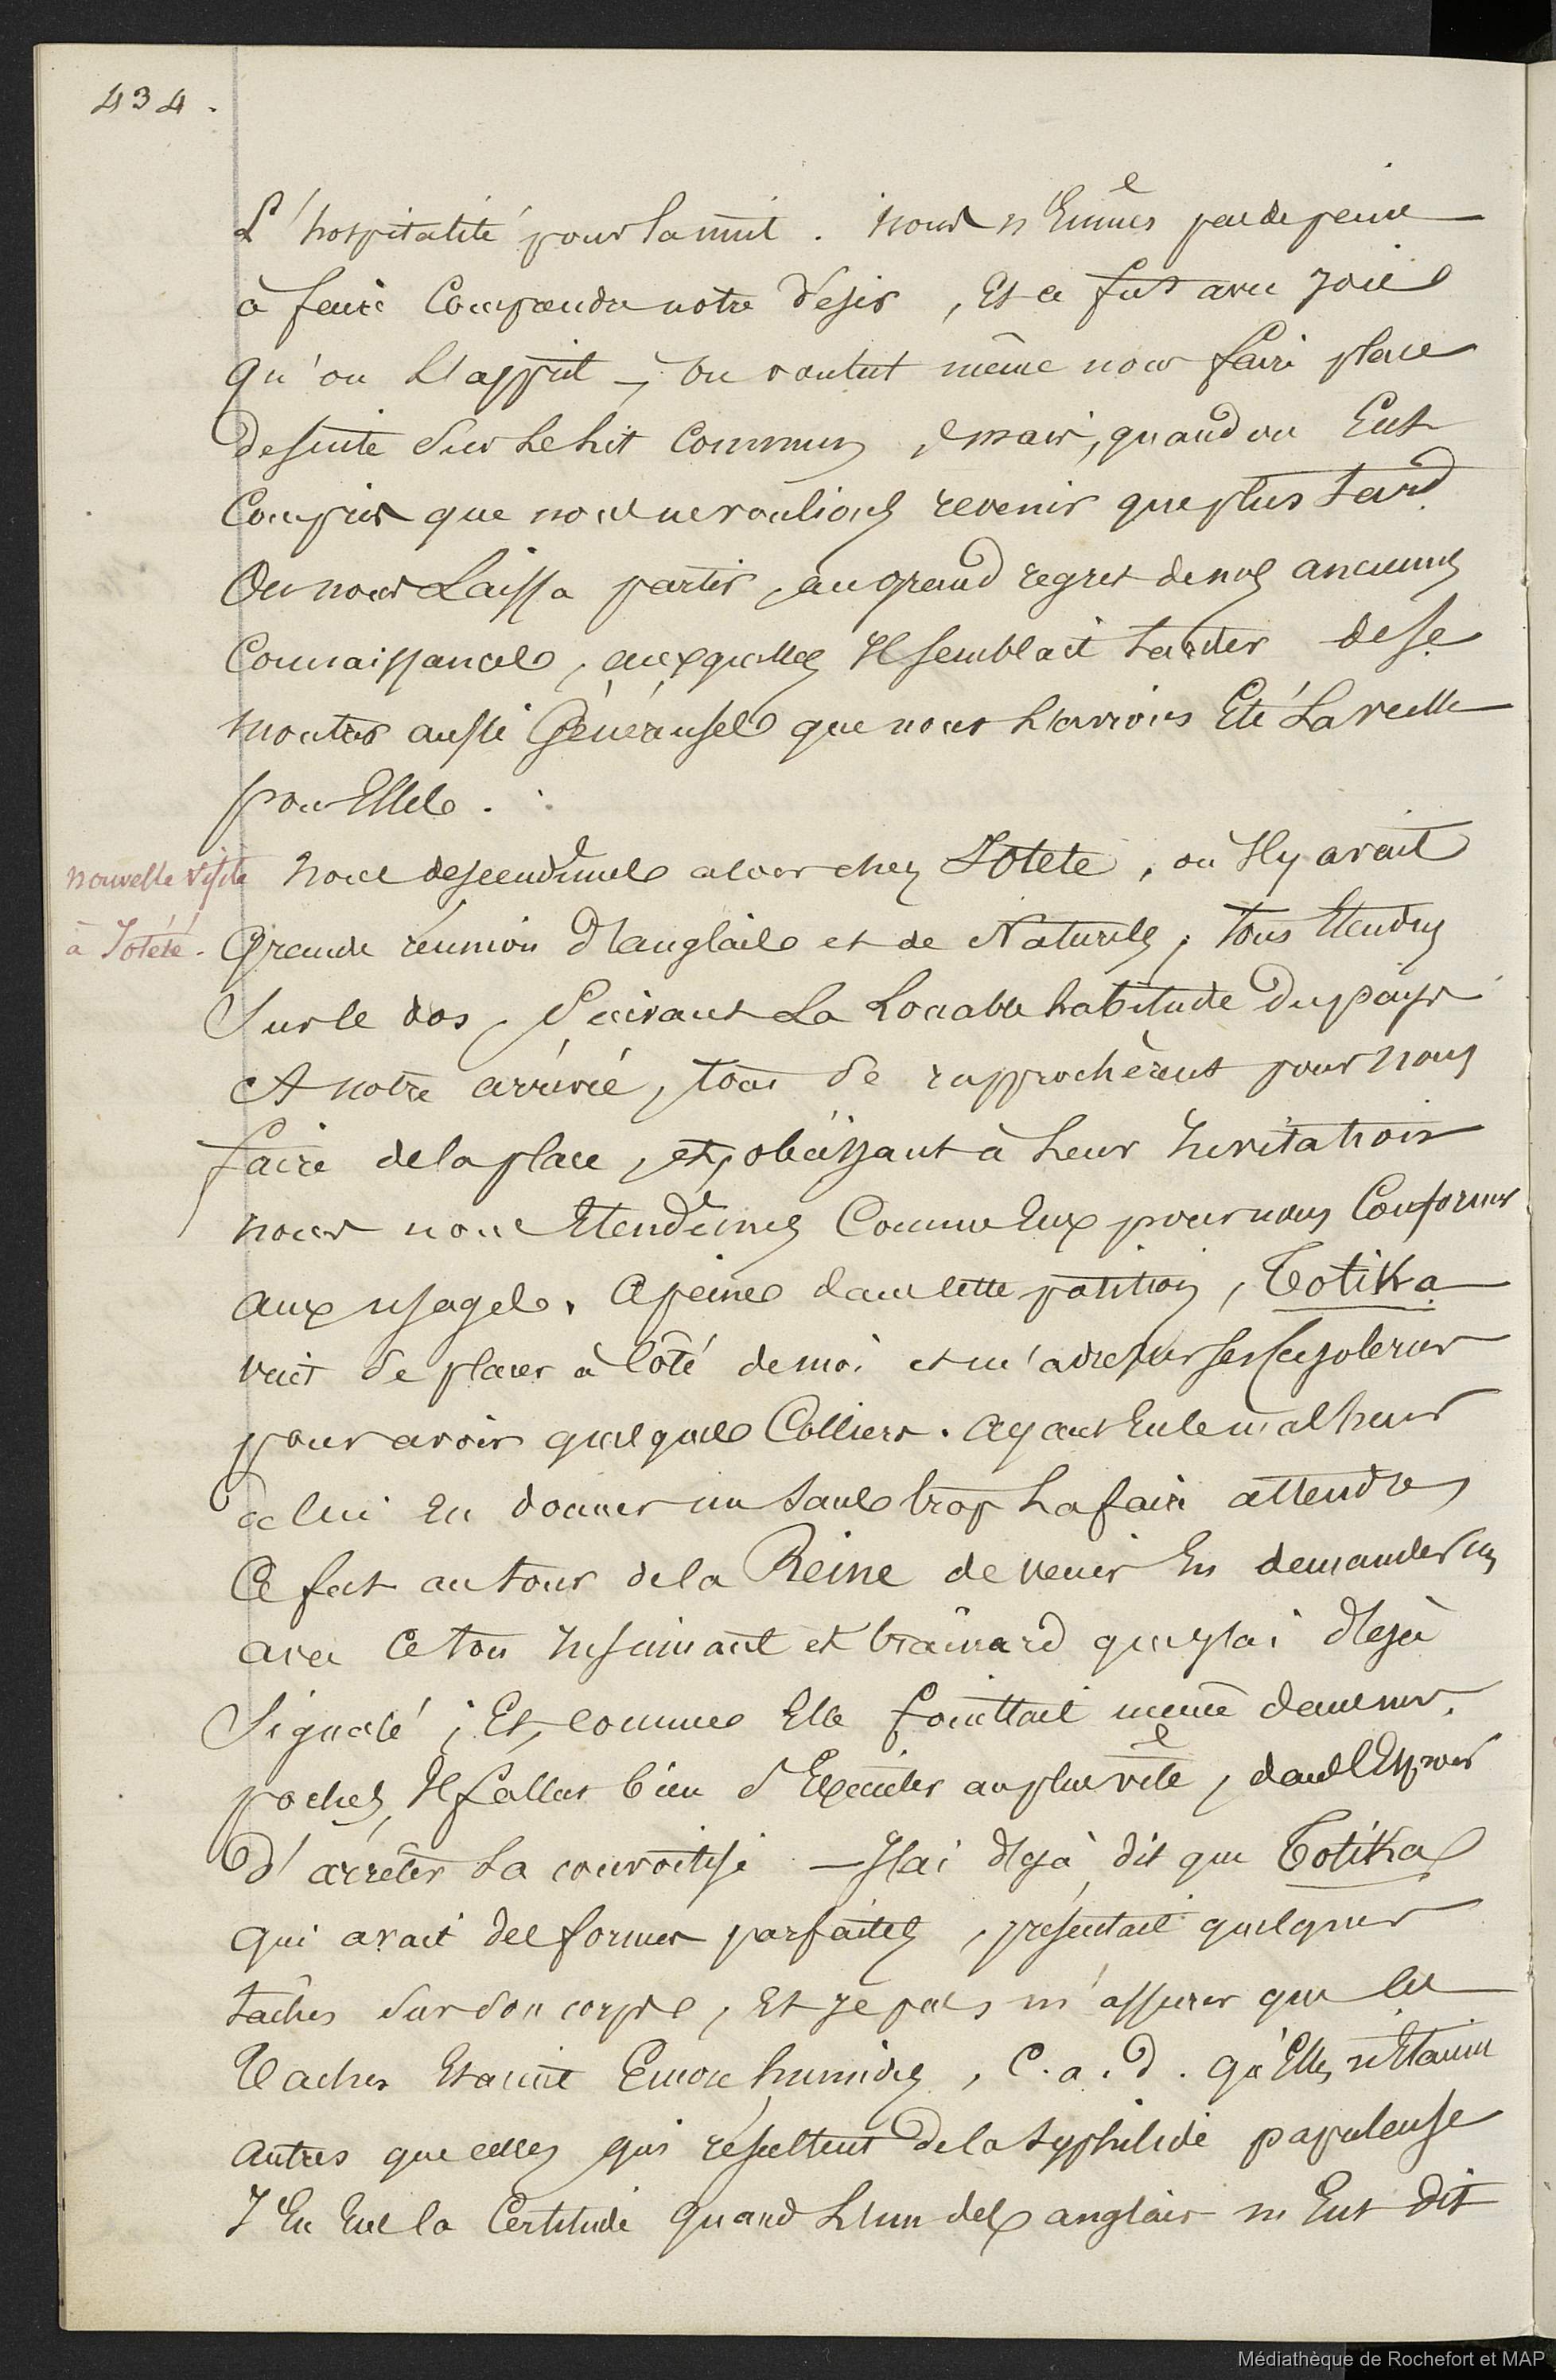 434.
L'hospitalité pour la nuit. Nous n'Eumes pas de peine
à faire Comprendre notre désir, Et ce fut avec joie
qu'on L'apprit — On voulut même nous faire place
de suite sur Le Lit Commun, mais, quand on Eut
Compris que nous ne voulions revenir que plus tard
On nous Laissa partir, au grand regret de nos anciennes
Connaissances, auxquelles Il semblait tarder de se
montrer aussi Généreuses que nous L'avions Eté La veille
pour Elles.
nouvelle visite
à Jotété.
Nous descendimes alors chez Jotété, où Il y avait
Grande réunion d'anglais et de Naturels, tous Etendus
Sur le dos, Suivant La Louable habitude du pays
A notre arrivée, tous se rapprochèrent pour nous
faire de la place, et, obéissant à Leur Invitation
nous nous Etendimes Comme Eux pour nous Conformer
aux usages. A peine dans cette position, Totika
vint se placer à Côté de moi et m'adresser ses cajoleries
pour avoir quelques Colliers. Ayant Eu le malheur
de lui En donner un sans trop La faire attendre
Ce fut au tour de la Reine de venir En demander un
avec Ce ton Insinuant et trainard que j'ai déjà
Signalé; Et, comme Elle fouillait même dans mes
poches, Il fallut bien s'Exécuter au plus vite, dans l'Espoir
d'arrêter La convoitise — J'ai déjà dit que Totika
qui avait des formes parfaites, présentait quelques
taches sur son corps, Et je pus m'assurer que ces
Taches Etaient Encore humides, C.a.d. qu'Elles n'Etaient
autres que celles qui résultent de la syphilide papuleuse
J'En Eus la Certitude quand L'un des anglais m'Eut dit
Médiathèque de Rochefort et MAP